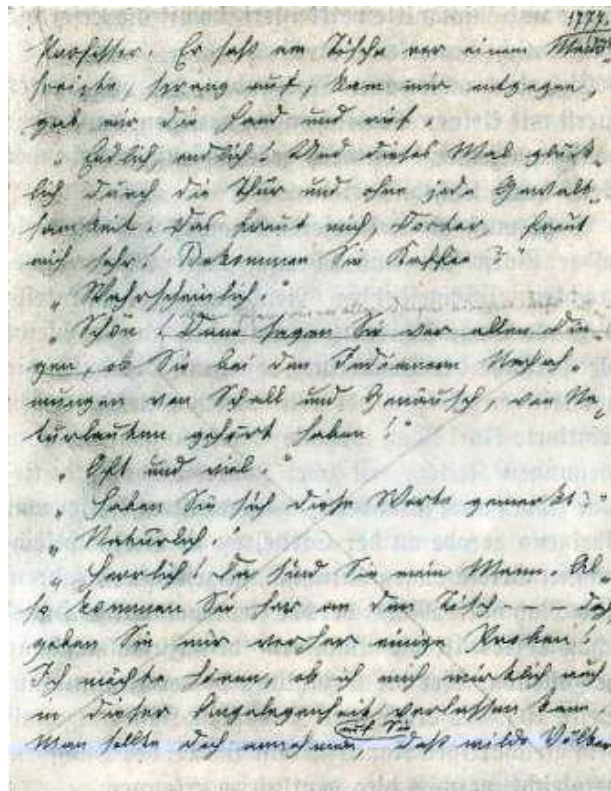 1777.
Professor. Er saß am Tische vor einem Manu-
skripte, sprang auf, kam mir entgegen,
gab mir die Hand und rief:
„Endlich, endlich! Und dieses Mal glück-
lich durch die Thür und ohne jede Gewalt-
samkeit. Das freut mich, freut
mich sehr! Bekommen Sie Kaffee?“
„Wahrscheinlich.“
„Schön! Dann sagen Sie vor allen Din-
gen, ob Sie bei den Indianern Nachah-
mungen von Schall und Geräusch, von Na-
turlauten gehört haben?“
„Oft und viel.“
„Haben Sie sich diese Worte gemerkt?“
„Natürlich!“
„Herrlich! Da sind Sie mein Mann. Al-
so kommen Sie her an den Tisch — — doch
geben Sie mir vorher einige Proben!
Ich möchte hören, ob ich mich wirklich auch
in dieser Angelegenheit auf Sie verlassen kann.
Man sollte doch annehmen, daß wilde Völker